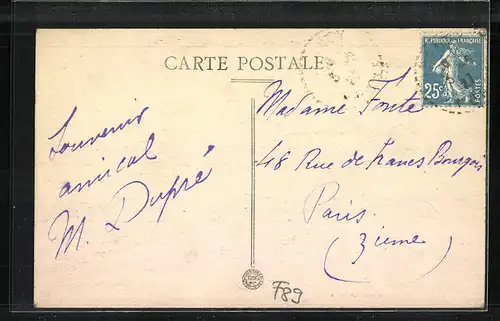 CARTE POSTALE
RÉPUBLIQUE FRANÇAISE
25c
POSTES
Souvenir
amical
M. Dupré
Madame Fonta
48 Rue de Francs Bourgois
Paris
(3ieme)
F89